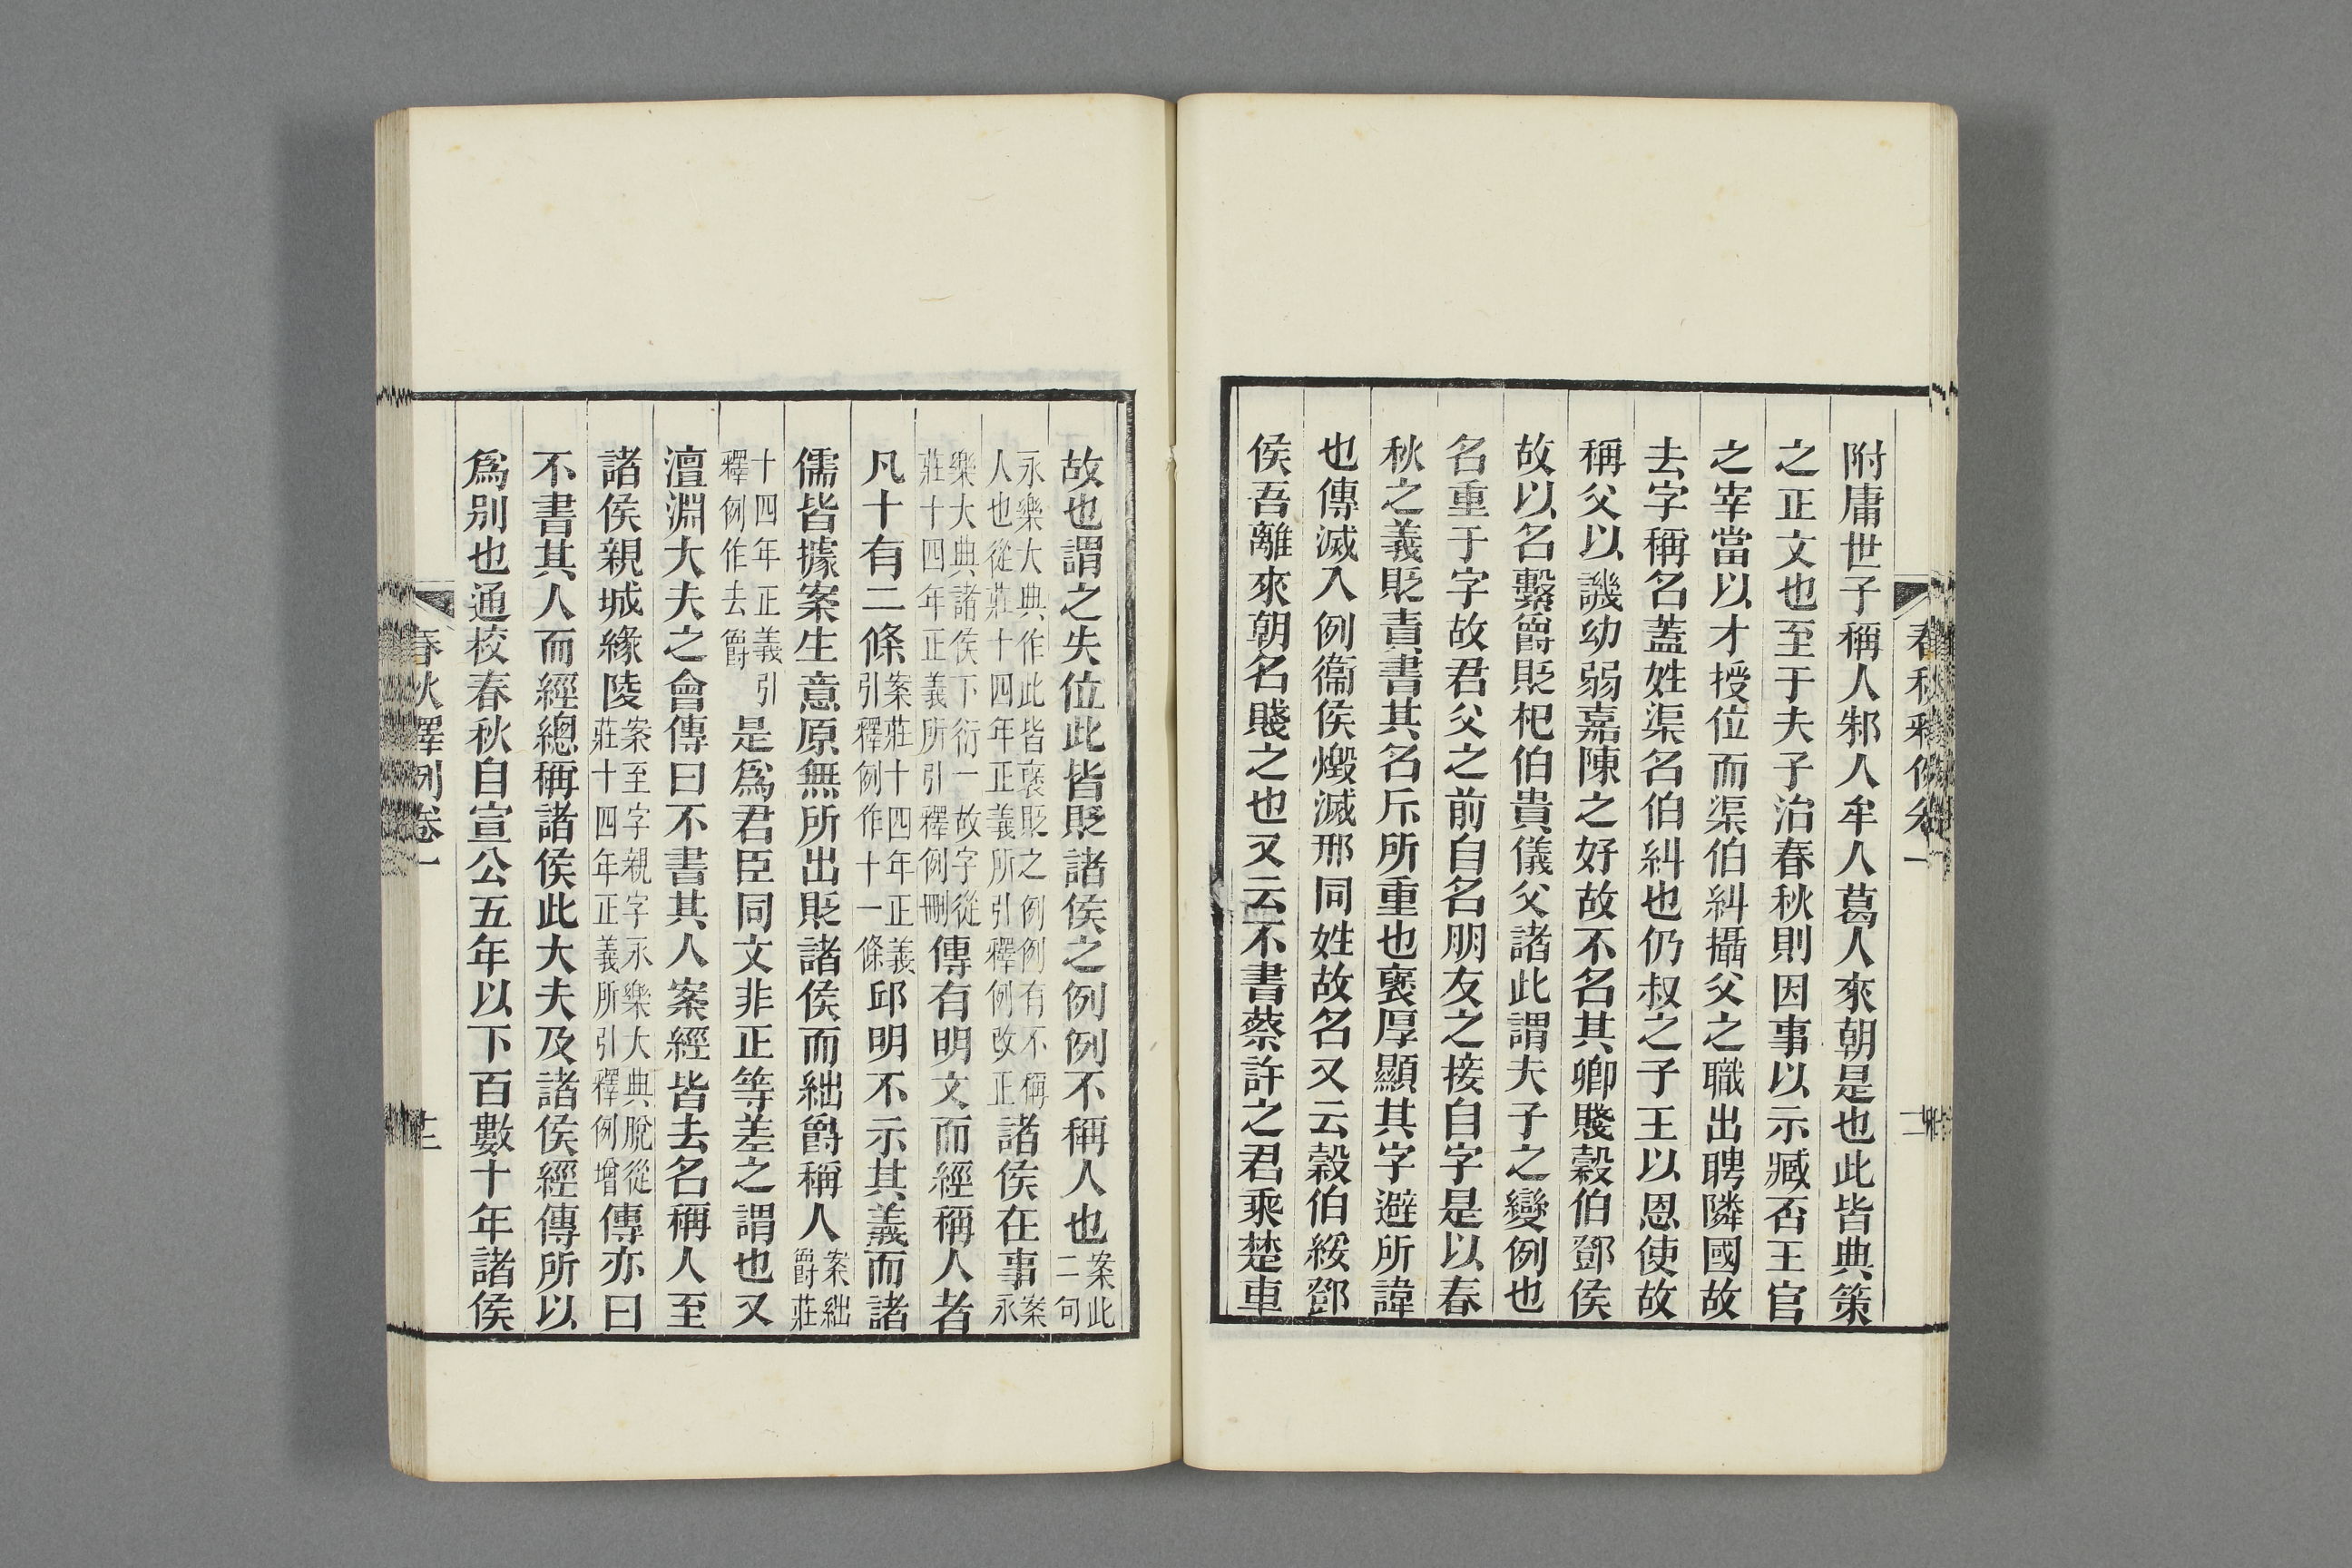 附庸世子稱人邾人牟人葛人來朝是也此皆典策
之正文也至于夫子治春秋則因事以示臧否王官
之宰當以才授位而渠伯糾攝父之職出聘隣國故
去字稱名蓋姓渠名伯糾也仍叔之子王以恩使故
稱父以譏幼弱嘉陳之好故不名其卿賤穀伯鄧侯
故以名繫爵貶杞伯貴儀父諸此謂夫子之變例也
名重于字故君父之前自名朋友之接自字是以春
秋之義貶責書其名斥所重也褒厚顯其字避所諱
也傳滅入例衞侯燬滅邢同姓故名又云穀伯綏鄧
侯吾離來朝名賤之也又云不書蔡許之君乘楚車
故也謂之失位此皆貶諸侯之例例不稱人也案此二句
永樂大典作此皆褒貶之例例有不稱人也從莊十四年正義所引釋例改正諸侯在事案永
樂大典諸侯下衍一故字從莊十四年正義所引釋例刪傳有明文而經稱人者
凡十有二條案莊十四年正義引釋例作十一條邱明不示其義而諸
儒皆據案生意原無所出貶諸侯而絀爵稱人案絀爵莊
十四年正義引釋例作去爵是爲君臣同文非正等差之謂也又
澶淵大夫之會傳曰不書其人案經皆去名稱人至
諸侯親城緣陵案至字親字永樂大典脫從莊十四年正義所引釋例增傳亦曰
不書其人而經總稱諸侯此大夫及諸侯經傳所以
爲別也通校春秋自宣公五年以下百數十年諸侯
春秋釋例卷一